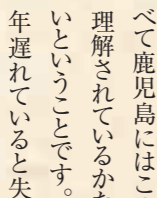 べて鹿児島にはこ
理解されているかを
いということです。
年遅れていると失